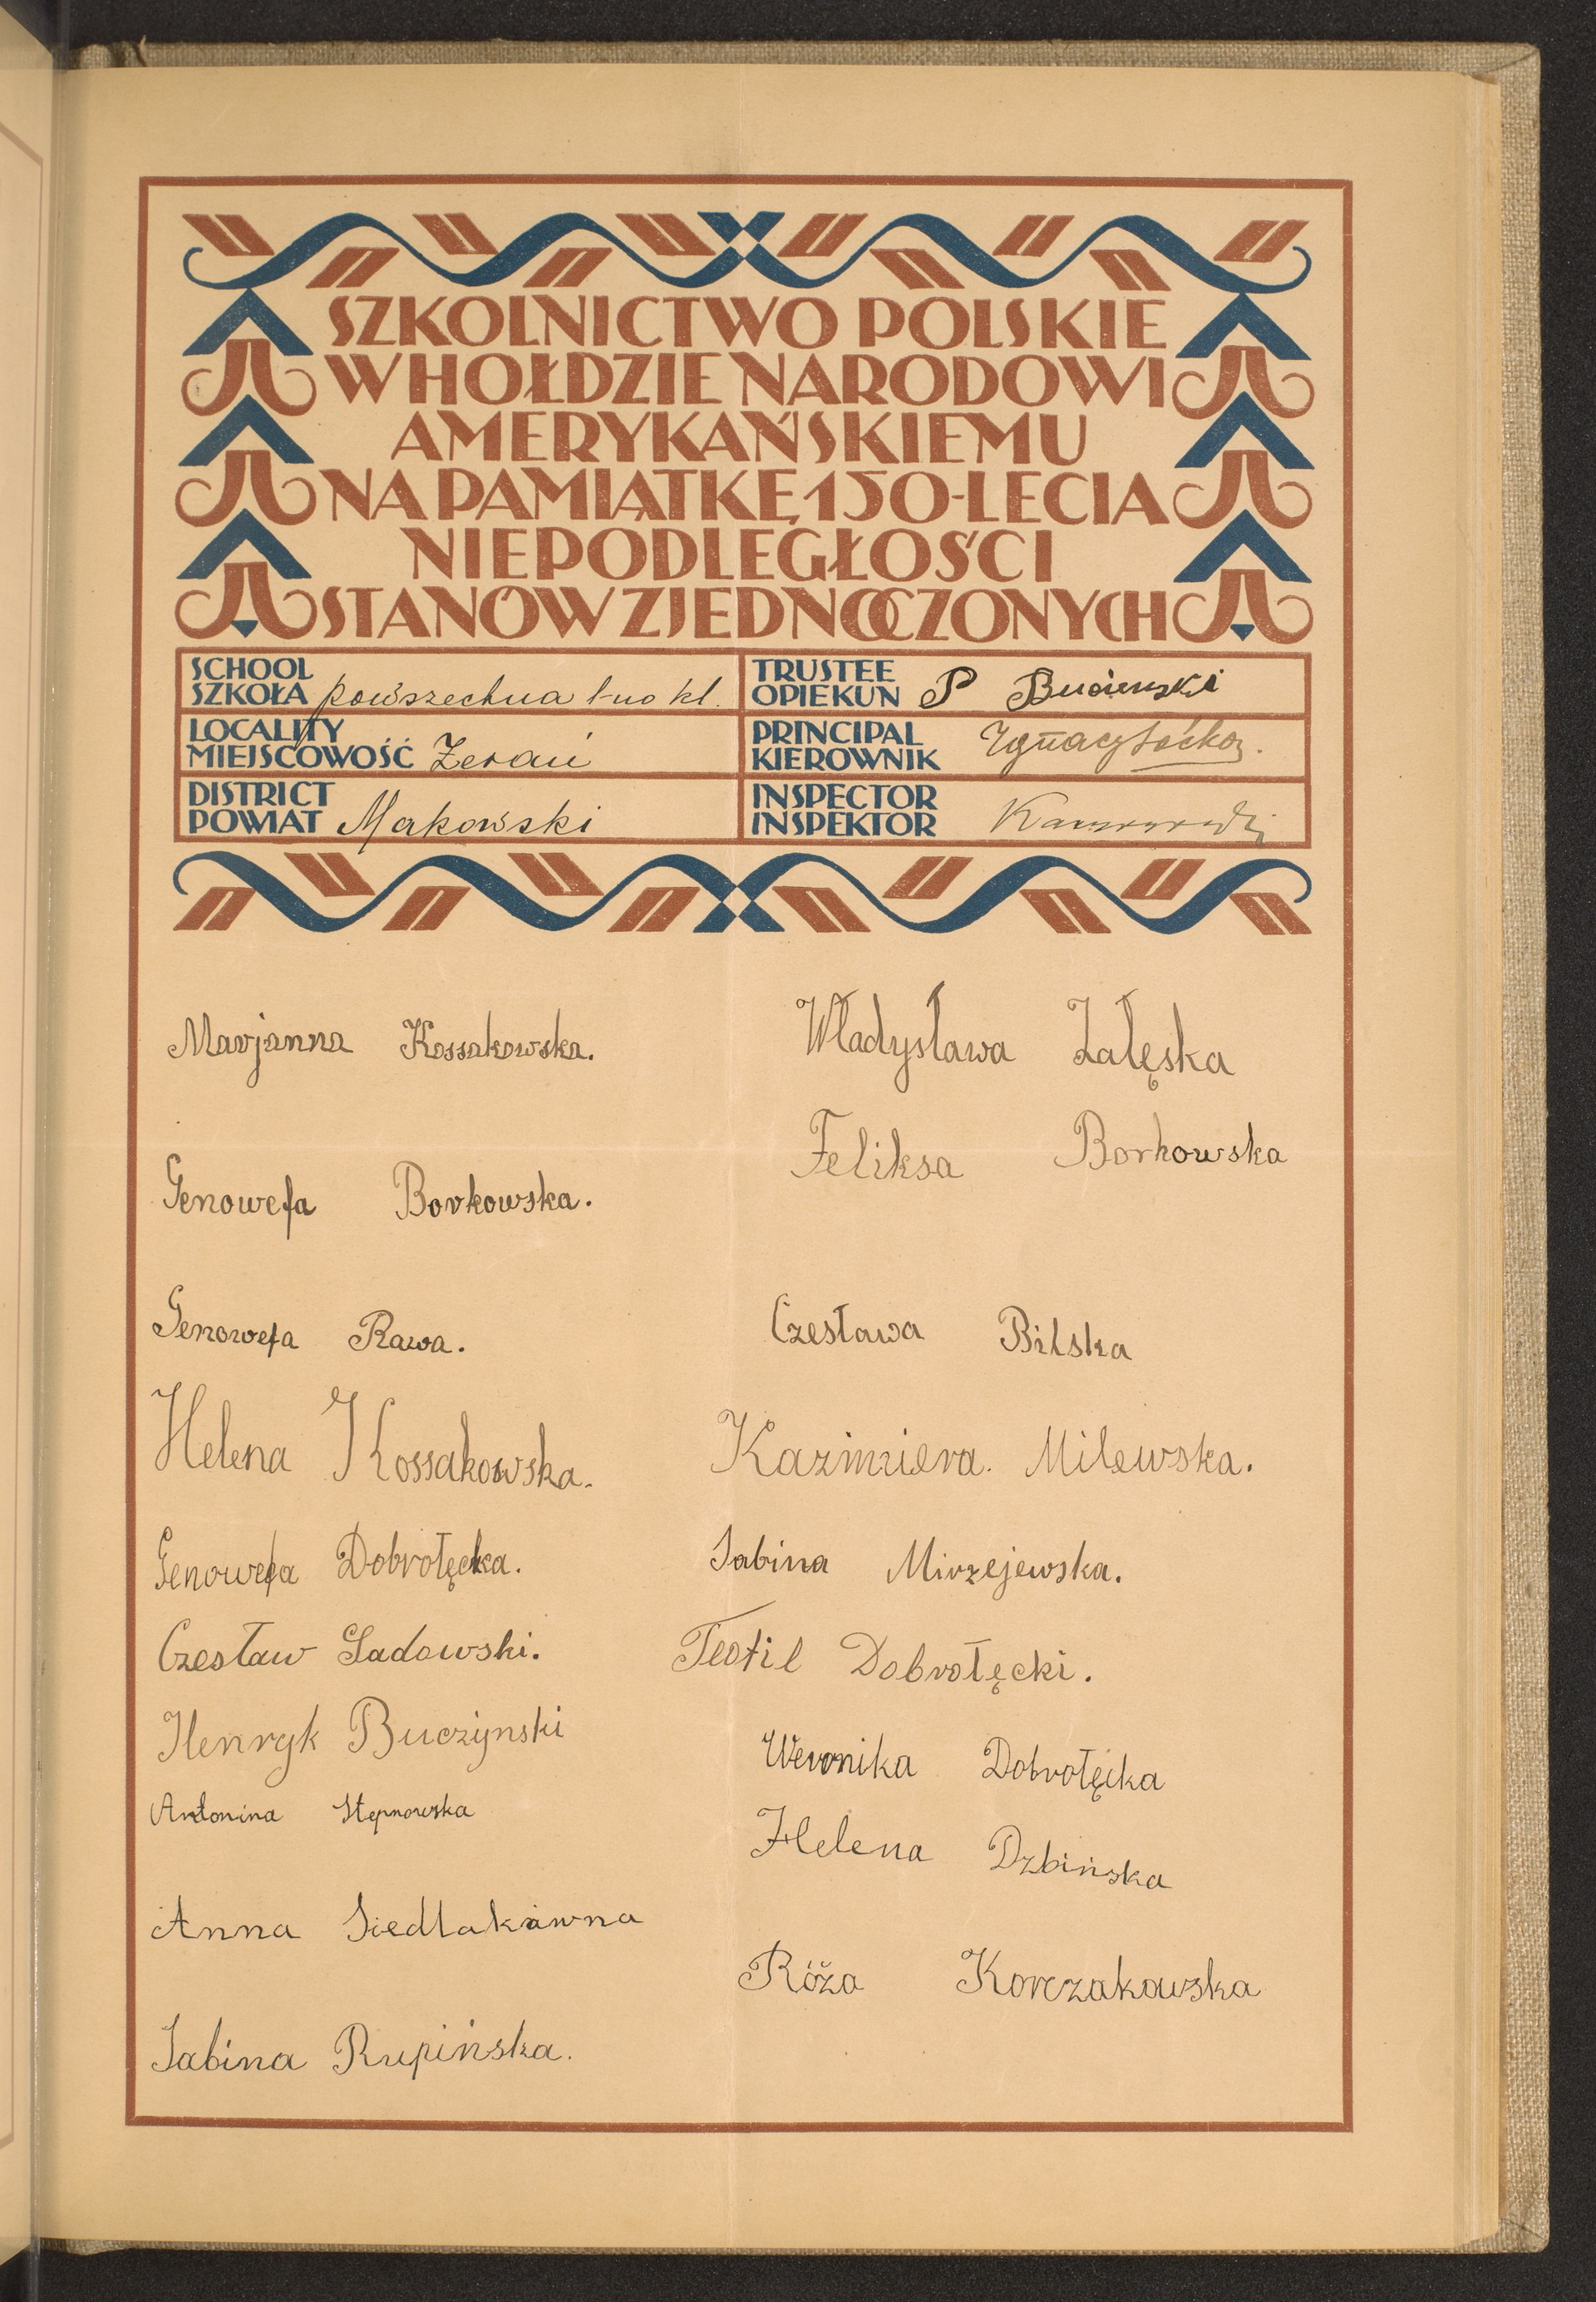 SZKOLNICTWO POLSKIE
W HOŁDZIE NARODOWI
AMERYKAŃSKIEMU
NA PAMIĄTKĘ 150-LECIA
NIEPODLEGŁOŚCI
STANÓW ZJEDNOCZONYCH
SCHOOL
SZKOŁA powszechna 1-no kl.
LOCALITY
MIEJSCOWOŚĆ Żerań
DISTRICT
POWIAT Makowski
TRUSTEE
OPIEKUN P
PRINCIPAL
KIEROWNIK Ignacy
INSPECTOR
INSPEKTOR
Marjanna Kossakowska.
Genowefa Borkowska.
Genowefa Rawa.
Helena Kossakowska.
Genowefa Dobrołęcka.
Czesław Sadowski.
Henryk Buczynski
Antonina Stepnowska
Anna Siedlakówna
Sabina Rupińska.
Władysława Załęska
Feliksa Borkowska
Czesława Bilska
Kazimiera. Milewska.
Sabina Mirzejewska.
Teofil Dobrołęcki.
Weronika Dobrołęcka
Helena Dzbińska
Róża Korczakowska